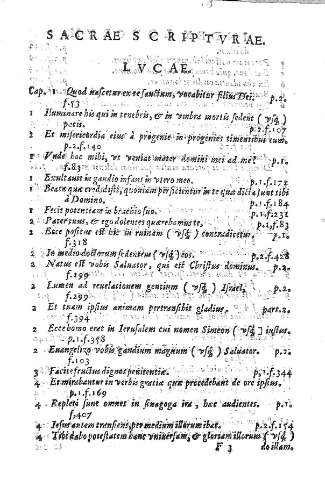 SACRAE SCRIPTVRAE.
LVCAE.
Cap. 1 Quod nascetur ex te sanctum, vocabitur filius Dei. p.2.
f.53
1 Iluminare his qui in tenebris, & in vmbra mortis sedent (vsq̃)
pacis. p.2.f.107
1 Et misericordia eius à progenie in progenies timentibus eum.
p.2.f.140
1 Vnde hoc mihi, vt veniat mater domini mei ad me? p.1.
f.83
1 Exultauit in gaudio infans in vtero meo. p.1.f.171
1 Beata quæ credidisti, quoniam perficientur in te quæ dicta sunt tibi
à Domino. p.1.f.184
1 Fecit potentiam in brachio suo. p.1.f.231
2 Pater tuus, & ego dolentes quærebamus te. p.1.f.83
2 Ecce positus est hic in ruinam (vsq̃) contradicetur. p.1.
f.318
2 In medio doctorum sedentem (vsq̃) eos. p.2.f.428
2 Natus est vobis Saluator, qui est Christus dominus. p.2.
f.199
2 Lumen ad reuelationem gentium (vsq̃) Israel. p.2.
f.299
2 Et tuam ipsius animam pertransibit gladius. part.2.
f.394
2 Ecce homo erat in Ierusalem cui nomen Simeon (vsq̃) iustus.
p.1.f.358
2 Euangelizo vobis gaudium magnum (vsq̃) Saluator. p.2.
f.103
3 Facite fructus dignos pœnitentiæ. p.1.f.344
4 Et mirabantur in verbis gratiæ quæ procedebant de ore ipsius.
p.1.f.169
4 Repleti sunt omnes in sinagoga ira, hæc audientes. p.1.
f.407
4 Iesus autem transiens, per medium illorum ibat. p.2.f.154
4 Tibi dabo potestatem hanc vniuersam, & gloriam illorum (vsq̃)
F 3 do illam.